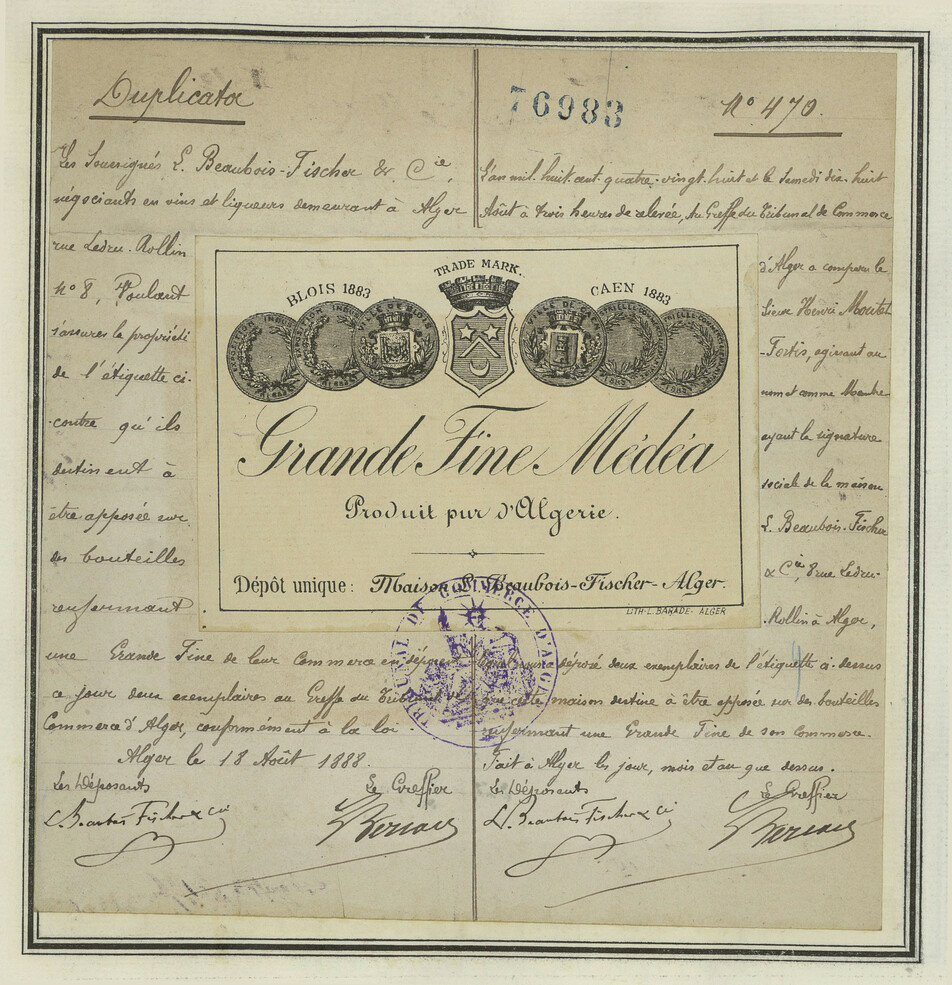 Duplicata
Les Soussignés L. Beaubois-Fischer & Cie,
négociants en vins et liqueurs demeurant à Alger
rue Ledru-Rollin
no 8, Voulant
s'assurer la propriété
de l'étiquette ci-
contre qu'ils
destinent à
être apposée sur
des bouteilles
renfermant
une Grande Fine de leur commerce en
ce jour deux exemplaires au Greffe du Tribunal de
Commerce d'Alger, conformément à la loi.
Alger le 18 Août 1888.
Les Déposants
Le Greffier
L. Beaubois Fischer & Cie
76983
No 470.
L'an mil huit cent quatre-vingt-huit et le Samedi dix-huit
Août à trois heures de relevée, Au Greffe du Tribunal de Commerce
d'Alger a comparu le
Sieur Henri
-Fortis, agissant au
nom et comme Membre
ayant la signature
sociale de la maison
L. Beaubois-Fischer
& Cie, 8 rue Ledru-
Rollin à Alger,
déposé deux exemplaires de l'étiquette ci-dessus
que cette maison destine à être apposée sur des bouteilles
renfermant une Grande Fine de son commerce.
Fait à Alger les jour, mois et an que dessus.
Les Déposants
Le Greffier
L. Beaubois Fischer & Cie
TRADE MARK.
BLOIS 1883
CAEN 1883
VILLE DE BLOIS
VILLE DE CAEN
Grande Fine Médéa
Produit pur d'Algerie.
Dépôt unique: Maison L. Beaubois-Fischer-Alger.
LITH-L. BARADE-ALGER
TRIBUNAL DE COMMERCE D'ALGER